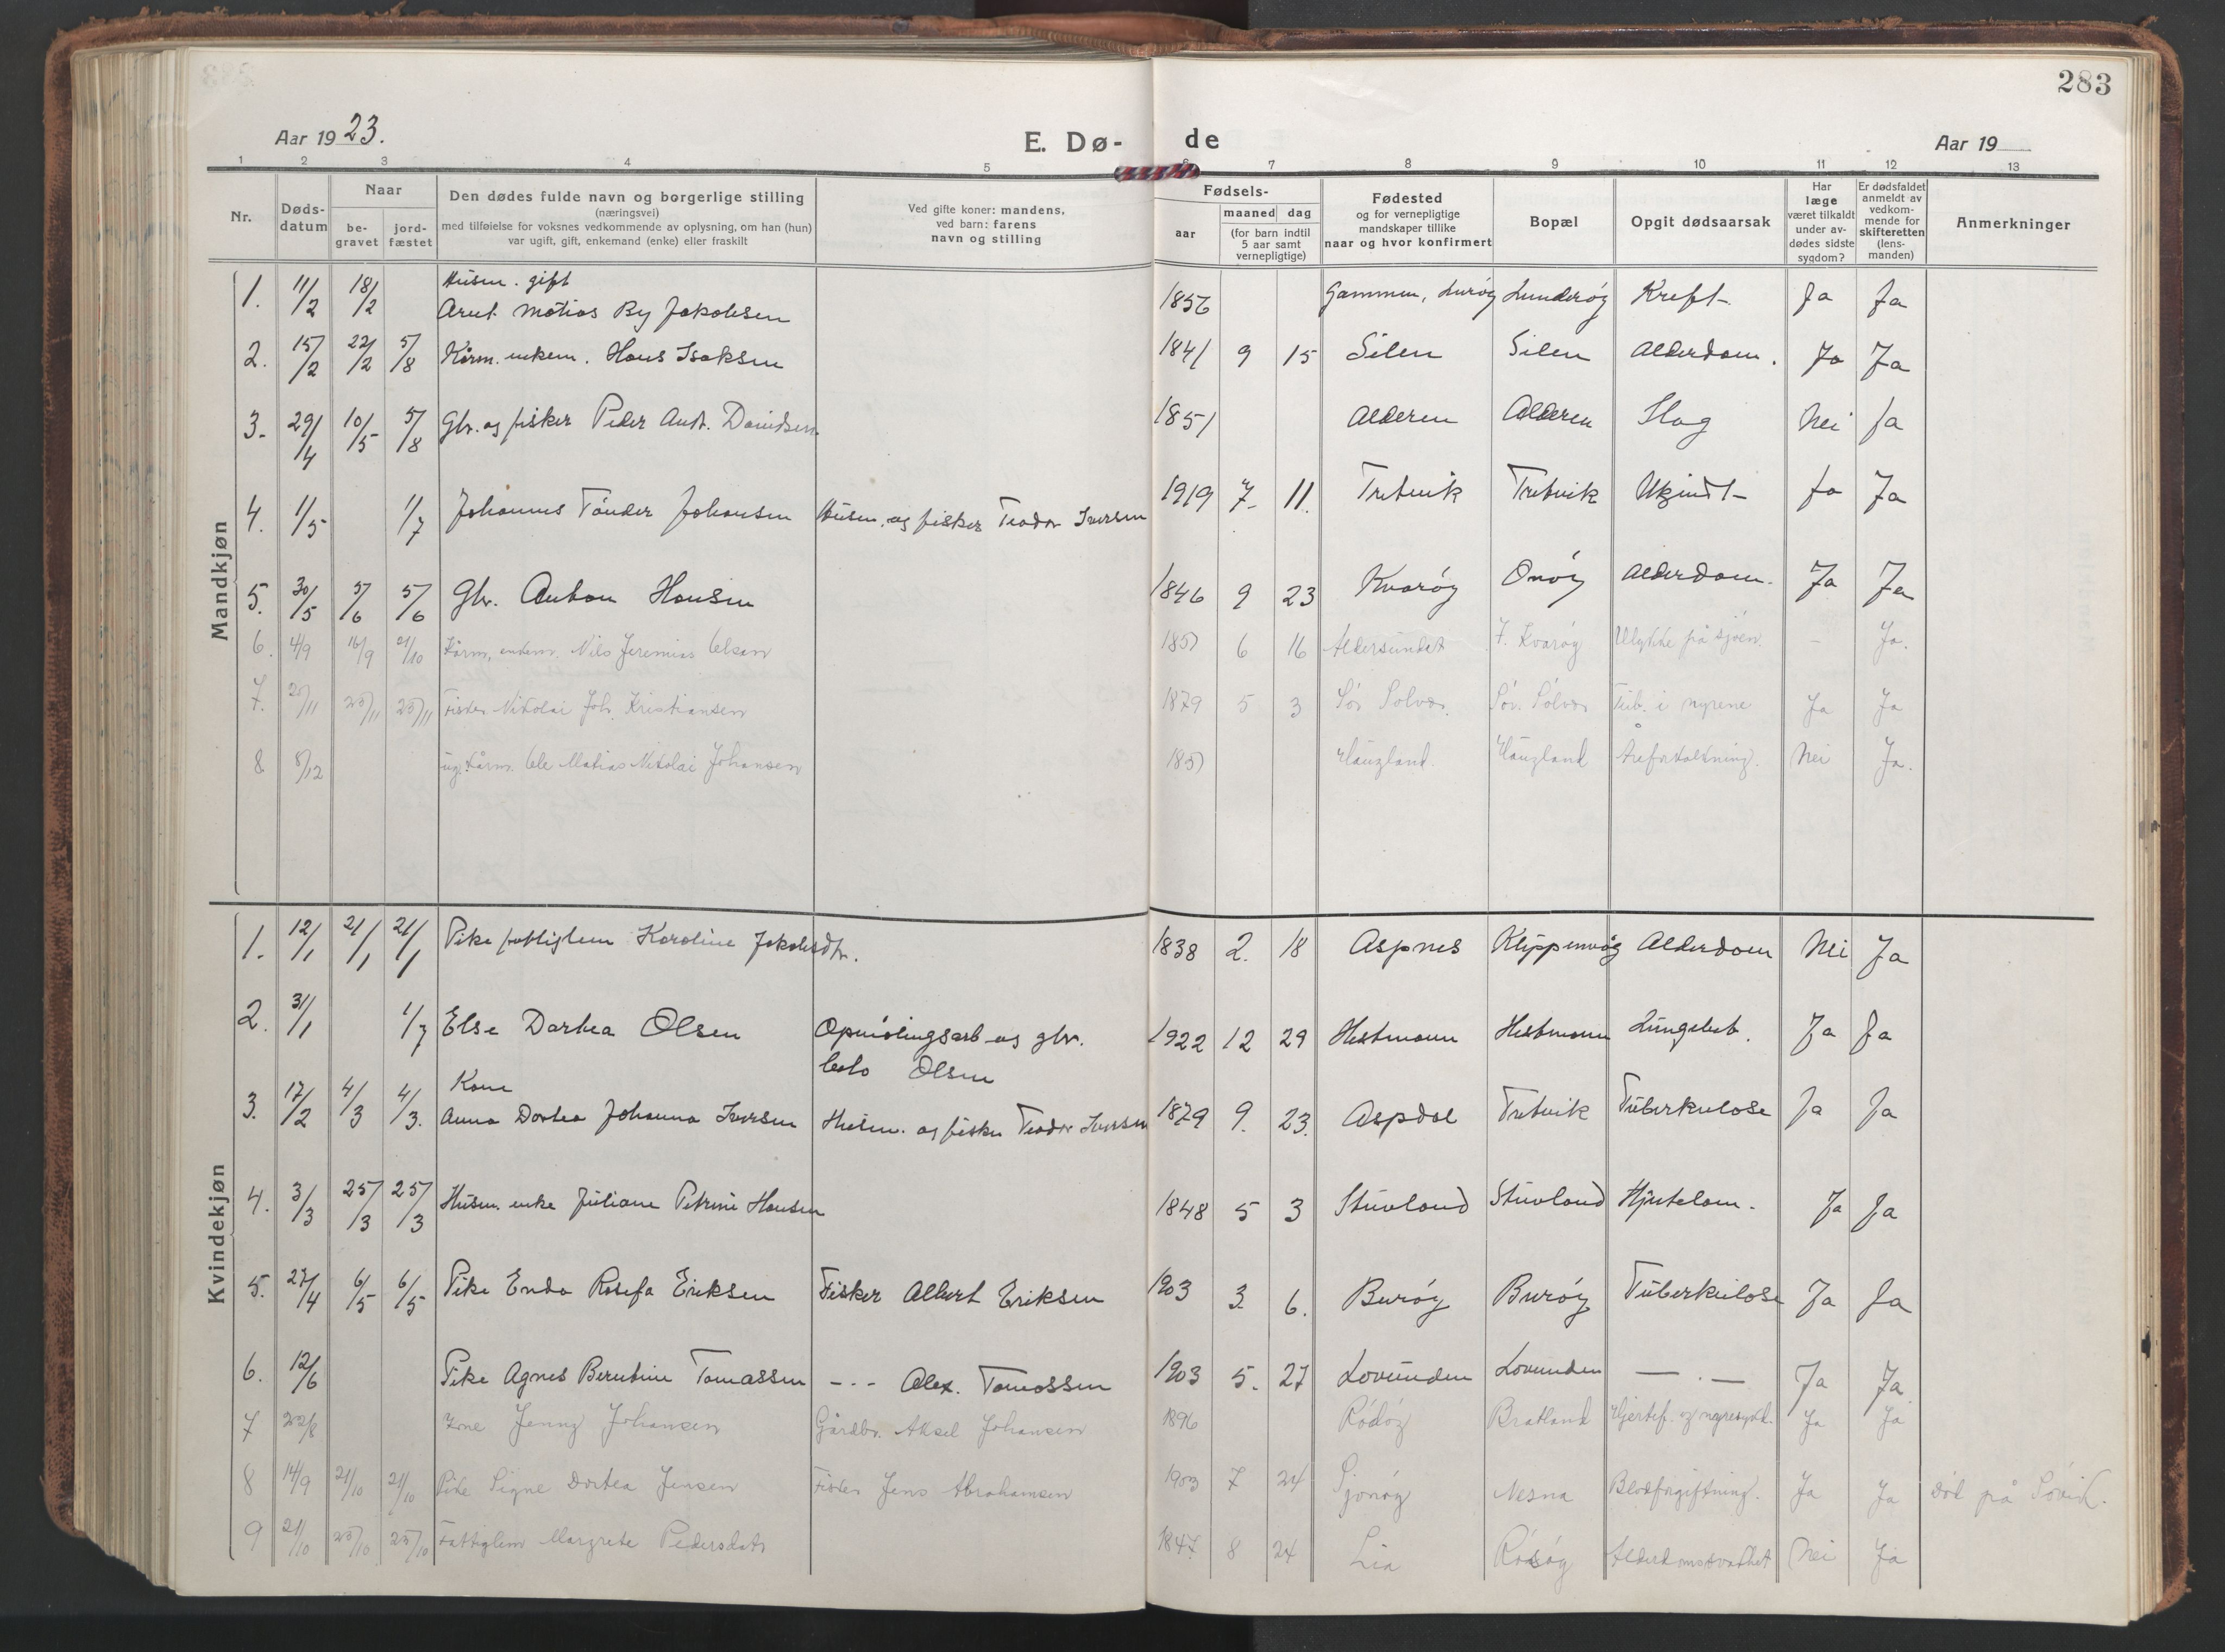 283
Aar 1923.
E. Dø- de
Aar 19
1 2 3 4 5 6 7 8 9 10 11 12 13
Nr.
Døds-
datum
Naar
be-
gravet
jord-
fæstet
Den dødes fulde navn og borgerlige stilling
(næringsvei)
med tilføielse for voksnes vedkommende av oplysning, om han (hun)
var ugift, gift, enkemand (enke) eller fraskilt
Ved gifte koner: mandens,
ved barn: farens
navn og stilling
Fødsels-
aar
maaned dag
(for barn indtil
5 aar samt
vernepligtige)
Fødested
og for vernepligtige
mandskaper tillike
naar og hvor konfirmert
Bopæl
Opgit dødsaarsak
Har
læge
været tilkaldt
under av-
dødes sidste
sygdom?
Er dødsfaldet
anmeldt av
vedkom-
mende for
skifteretten
(lens-
manden)
Anmerkninger
Mandkjøn
Husm. gift
1. 11/2 18/2 Arnt Matias By Jakobsen 1856 Gammen, Lurøy Lunderøy Kreft Ja Ja
2. 15/2 22/2 5/8 Kårm. enkem. Hans Isaksen 1841 9 15 Silen Silen Alderdom. Ja Ja
3. 29/4 10/5 5/8 Gbr. og fisker Peder Ant. Davidsen 1851 Alderen Alderen Slag Nei Ja
4. 1/5 1/7 Johannes Tønder Johansen Husm. og fisker Teodor Iversen 1919 7 11. Tretvik Tretvik Ukjendt Ja Ja
5. 30/5 5/6 5/6 Gbr. Anton Hansen 1846 9 23 Kvarøy Onøy Alderdom. Ja Ja
6. 4/9 16/9 21/10 Kårm, enkem. Nils Jeremias Olsen 6 16 Aldersundet Kvarøy Ulykke på sjøen. - Ja.
7. 20/11 25/11 25/11 Fisker Nikolai Joh. Kristiansen 1879 5 3 Sør Solvær Sør. Solvær Tub. i nyrene Ja Ja
8 8/12 ug. kårm. Ole Matias Nikolai Johansen Haugland. Haugland Åreforkalkning. Nei Ja.
Kvindekjøn
1. 12/1 21/1 21/1 Pike fattiglem Karoline Jakobsdtr. 1838 2. 18 Aspnes Klippenvåg Alderdom Nei Ja
2. 31/1 1/7 Else Dortea Olsen Opmålingsarb. og gbr. 1922 12 29 Hestmann Hestmann Lungebet. Ja Ja
Olsen
Kone
3. 17/2 4/3 4/3. Anna Dortea Johanna Iversen Husm. og fisker Teodor Iversen 1879 9. 23. Aspdal Tretvik Tuberkulose Ja Ja
4. 3/3 25/3 25/3 Husm. enke Juliane Petrine Hansen 1848 5 3 Stuvland Stuvland Hjertelam. Ja Ja
5. 27/4 6/5 6/5 Pike Enda Rosefa Eriksen Fisker Albert Eriksen 1903 3 6. Burøy Burøy Tuberkulose Ja Ja
6. 12/6 Pike Agnes Berntine Tomassen --- Alex. Tomassen 1903 5. 27 Lovunden Lovunden — . — Ja Ja
7 22/8 Kone Jenny Johansen Gårdbr. Aksel Johansen 1896 Rødøy Bratland Hjertef. og nyresykd. Ja Ja
8 14/9 21/10 21/10 Pike Signe Dortea Jensen Fisker Jens Abrahamsen 1903 7 24 Sjonøy Nesna Blodforgiftning. Ja Ja død på Søvik.
9 21/10 25/10 25/10 Fattiglem Margrete Pedersdatr 1847 8 24 Lia Alderdomssvakhet Nei Ja